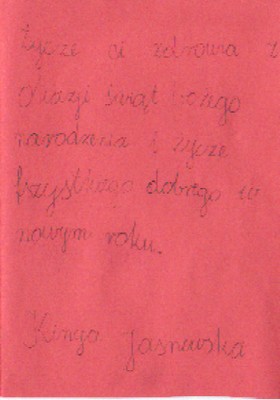 życze ci zdrowia z
okazji świąt bożego
narodzenia i życze
fszystkiego dobrego w
nowym roku.
Kinga Jasnewska